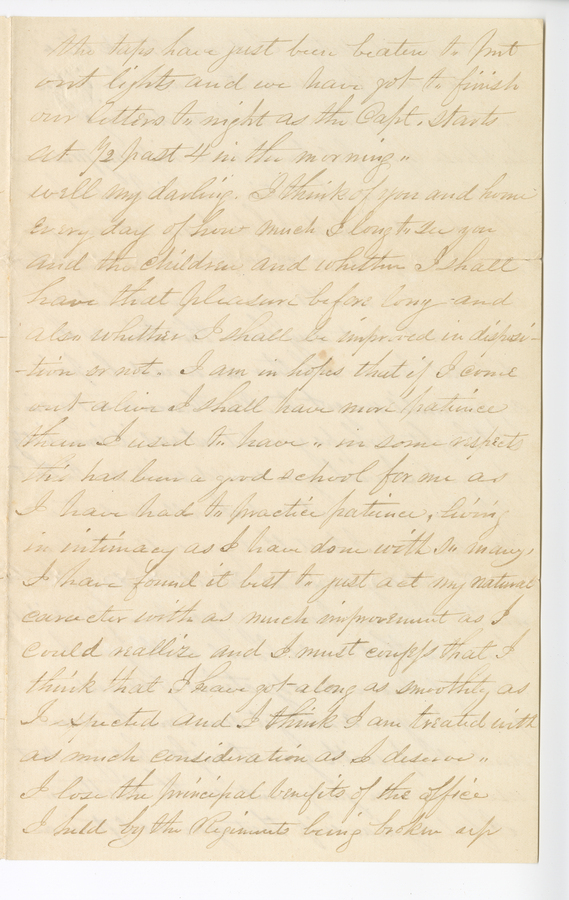 the taps have just been beaten to put
out lights and we have got to finish
our letters to night as the Capt. starts
at 1/2 past 4 in the morning"
well my darling. I think of you and home
every day of how much I long to see you
and the children and whether I shall
have that pleasure before long and
also whether I shall be improved in disposi-
-tion or not. I am in hopes that if I come
out alive I shall have more patience
then I used to have" in some respects
this has been a good school for me as
I have had to practice patience, living
in intimacy as I have done with so many,
I have found it best to just act my natural
caracter with as much improvement as I
could reallize and I must confess that I
think that I have got along as smoothly as
I expected and I think I am treated with
as much consideration as I deserve"
I lose the principal benefits of the office
I held by the Regiments being broken up